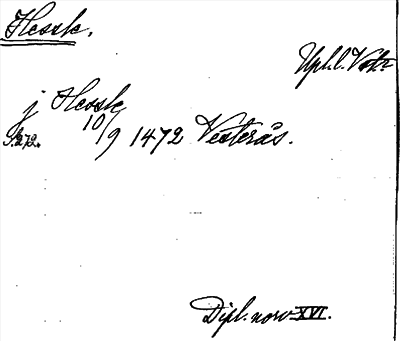 Hessle.
Upl. l. Vat.
j Hessle
S. 272. 10/9 1472 Vesterås.
Dipl. norv XVI.